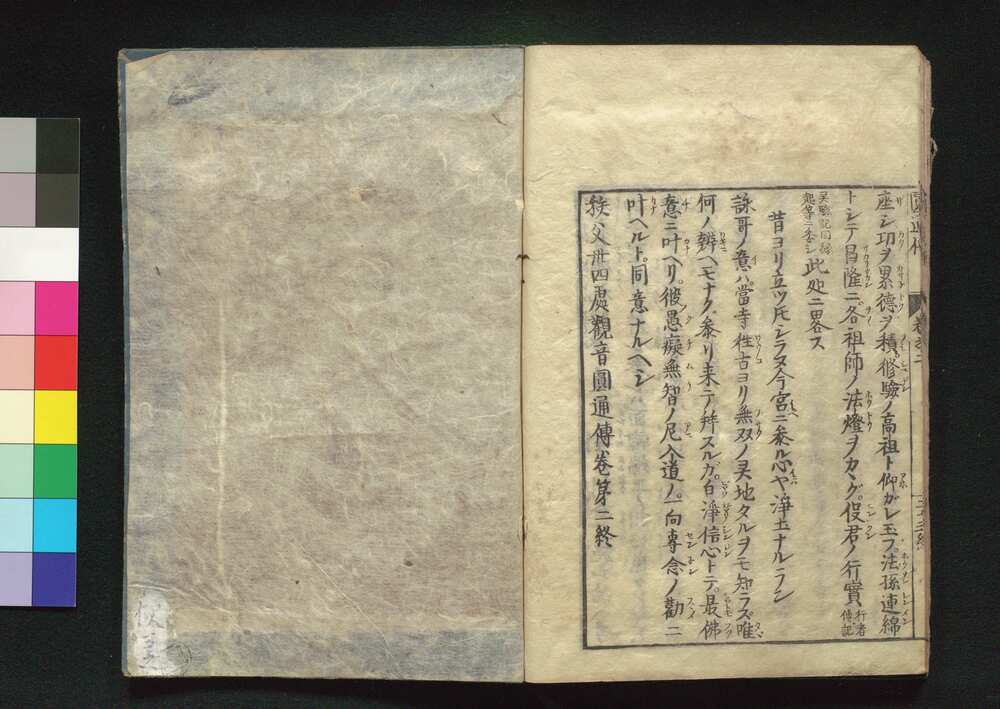 座シ功ヲ累德ヲ積修驗ノ高祖ト仰ガレ玉フ。法孫連綿
トシテ昌隆ニ各祖師ノ法燈ヲカヽグ。役君ノ行實行者傳記
起等ニ委シ此処ニ畧ス
昔ヨリ立ツ氏シラヌ今宮ニ參ル心ヤ淨土ナルラン
詠哥ノ意ハ。當寺往古ヨリ無双ノ灵地タルヲモ知ラズ唯
何ノ辨ヘモナク。參リ来テノ拜スルガ。自淨信心トテ。最佛
意ニ叶ヘリ。彼愚癡無智ノ尼入道ノ。一向專念ノ勸ニ
叶ヘルト。同意ナルヘシ
秩父卅四處觀音圓通傳卷第二終